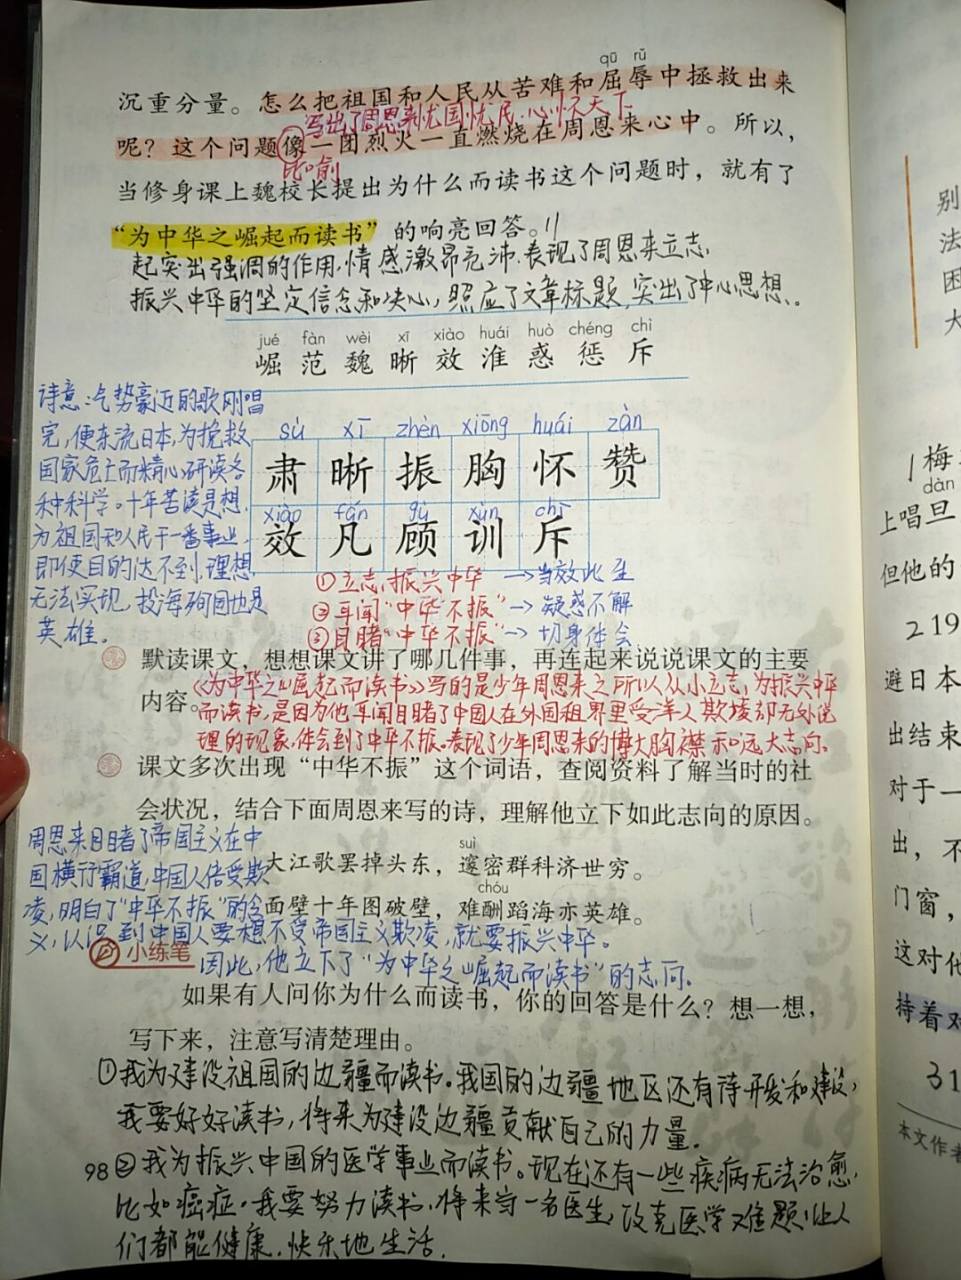 qū rǔ
沉重分量。怎么把祖国和人民从苦难和屈辱中拯救出来
写出了周恩来忧国忧民,心怀天下
呢？这个问题像一团烈火一直燃烧在周恩来心中。所以，
比喻
当修身课上魏校长提出为什么而读书这个问题时，就有了
“为中华之崛起而读书”的响亮回答。
起突出强调的作用,情感激昂充沛,表现了周恩来立志,
振兴中华的坚定信念和决心,照应了文章标题,突出了中心思想.
jué fàn wèi xī xiào huái huò chéng chì
崛 范 魏 晰 效 淮 惑 惩 斥
诗意:气势豪迈的歌刚唱
完,便东流日本,为挽救
国家危亡而精心研读各
种科学。十年苦读是想
为祖国和人民干一番事业,
即使目的达不到,理想
无法实现,投海殉国也是
英雄.
sù xī zhèn xiōng huái zàn
肃 晰 振 胸 怀 赞
xiào fán gù xùn chì
效 凡 顾 训 斥
①立志,振兴中华→当效此生
②耳闻“中华不振”→疑惑不解
③目睹“中华不振”→切身体会
默读课文，想想课文讲了哪几件事，再连起来说说课文的主要
内容。
《为中华之崛起而读书》写的是少年周恩来之所以从小立志,为振兴中华
而读书,是因为他耳闻目睹了中国人在外国租界里受洋人欺凌却无处说
理的现象,体会到了中华不振.表现了少年周恩来的博大胸襟和远大志向.
课文多次出现“中华不振”这个词语，查阅资料了解当时的社
会状况，结合下面周恩来写的诗，理解他立下如此志向的原因。
suì
大江歌罢掉头东，邃密群科济世穷。
chóu
面壁十年图破壁，难酬蹈海亦英雄。
周恩来目睹了帝国主义在中
国横行霸道,中国人倍受欺
凌,明白了“中华不振”的含
义,认识到中国人要想不受帝国主义欺凌,就要振兴中华。
因此,他立下了“为中华之崛起而读书”的志向.
小练笔
如果有人问你为什么而读书，你的回答是什么？想一想，
写下来，注意写清楚理由。
①我为建设祖国的边疆而读书.我国的边疆地区还有待开发和建设,
我要好好读书,将来为建设边疆贡献自己的力量.
②我为振兴中国的医学事业而读书。现在还有一些疾病无法治愈,
比如癌症.我要努力读书,将来当一名医生,攻克医学难题,让人
们都能健康.快乐地生活.
98
别
法
困
大
1梅
dàn
上唱旦
但他的
2 19
避日本
出结束
对于一
出，不
门窗，
这对他
持着对
31
本文作者